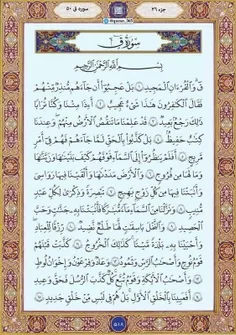 جزء ۲۶
سوره ق ۵۰
سُورَةُ ق
بِسْمِ اللَّهِ الرَّحْمَٰنِ الرَّحِيمِ
قٓ وَالْقُرْءَانِ الْمَجِيدِ ۱ بَلْ عَجِبُوٓا أَن جَآءَهُم مُّنذِرٌ مِّنْهُمْ
فَقَالَ الْكَٰفِرُونَ هَٰذَا شَىْءٌ عَجِيبٌ ۲ أَءِذَا مِتْنَا وَكُنَّا تُرَابًا
ذَٰلِكَ رَجْعٌۢ بَعِيدٌ ۳ قَدْ عَلِمْنَا مَا تَنقُصُ الْأَرْضُ مِنْهُمْ وَعِندَنَا
كِتَٰبٌ حَفِيظٌۢ ۴ بَلْ كَذَّبُوا بِالْحَقِّ لَمَّا جَآءَهُمْ فَهُمْ فِىٓ أَمْرٍ
مَّرِيجٍ ۵ أَفَلَمْ يَنظُرُوٓا إِلَى السَّمَآءِ فَوْقَهُمْ كَيْفَ بَنَيْنَٰهَا وَزَيَّنَّٰهَا
وَمَا لَهَا مِن فُرُوجٍ ۶ وَالْأَرْضَ مَدَدْنَٰهَا وَأَلْقَيْنَا فِيهَا رَوَٰسِىَ
وَأَنۢبَتْنَا فِيهَا مِن كُلِّ زَوْجٍۭ بَهِيجٍ ۷ تَبْصِرَةً وَذِكْرَىٰ لِكُلِّ عَبْدٍ
مُّنِيبٍ ۸ وَنَزَّلْنَا مِنَ السَّمَآءِ مَآءً مُّبَٰرَكًا فَأَنۢبَتْنَا بِهِۦ جَنَّٰتٍ وَحَبَّ
الْحَصِيدِ ۹ وَالنَّخْلَ بَاسِقَٰتٍ لَّهَا طَلْعٌ نَّضِيدٌ ۱۰ رِّزْقًا لِّلْعِبَادِ
وَأَحْيَيْنَا بِهِۦ بَلْدَةً مَّيْتًا كَذَٰلِكَ الْخُرُوجُ ۱۱ كَذَّبَتْ قَبْلَهُمْ
قَوْمُ نُوحٍ وَأَصْحَٰبُ الرَّسِّ وَثَمُودُ ۱۲ وَعَادٌ وَفِرْعَوْنُ وَإِخْوَٰنُ لُوطٍ
۱۳ وَأَصْحَٰبُ الْأَيْكَةِ وَقَوْمُ تُبَّعٍ كُلٌّ كَذَّبَ الرُّسُلَ فَحَقَّ وَعِيدِ
۱۴ أَفَعَيِينَا بِالْخَلْقِ الْأَوَّلِ بَلْ هُمْ فِى لَبْسٍ مِّنْ خَلْقٍ جَدِيدٍ ۱۵
۵۱۸